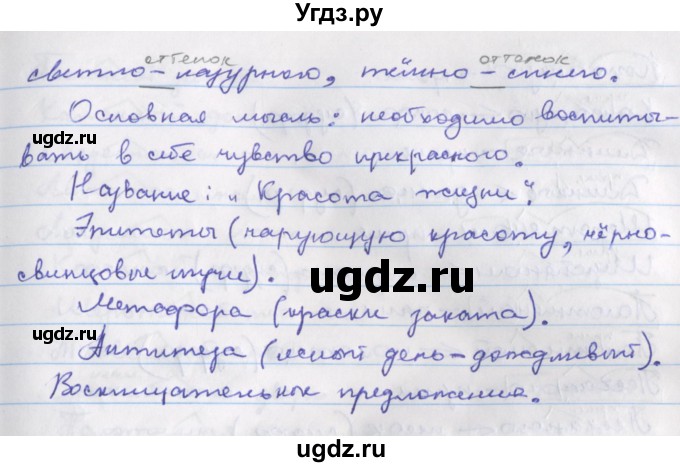 Угдз.ру
оттенок оттенок
светло-лазурного, тёмно-синего.
Основная мысль: необходимо воспиты-
вать в себе чувство прекрасного.
Название: „Красота жизни“.
Эпитеты (чарующую красоту, чёрно-
свинцовые тучи).
ugdz.ru
Метафора (краски заката).
Антитеза (ясный день - дождливый).
Восклицательные предложения.
ugdz.ru
ugdz.ru
ugdz.ru
ugdz.ru
ugdz.ru
ugdz.ru